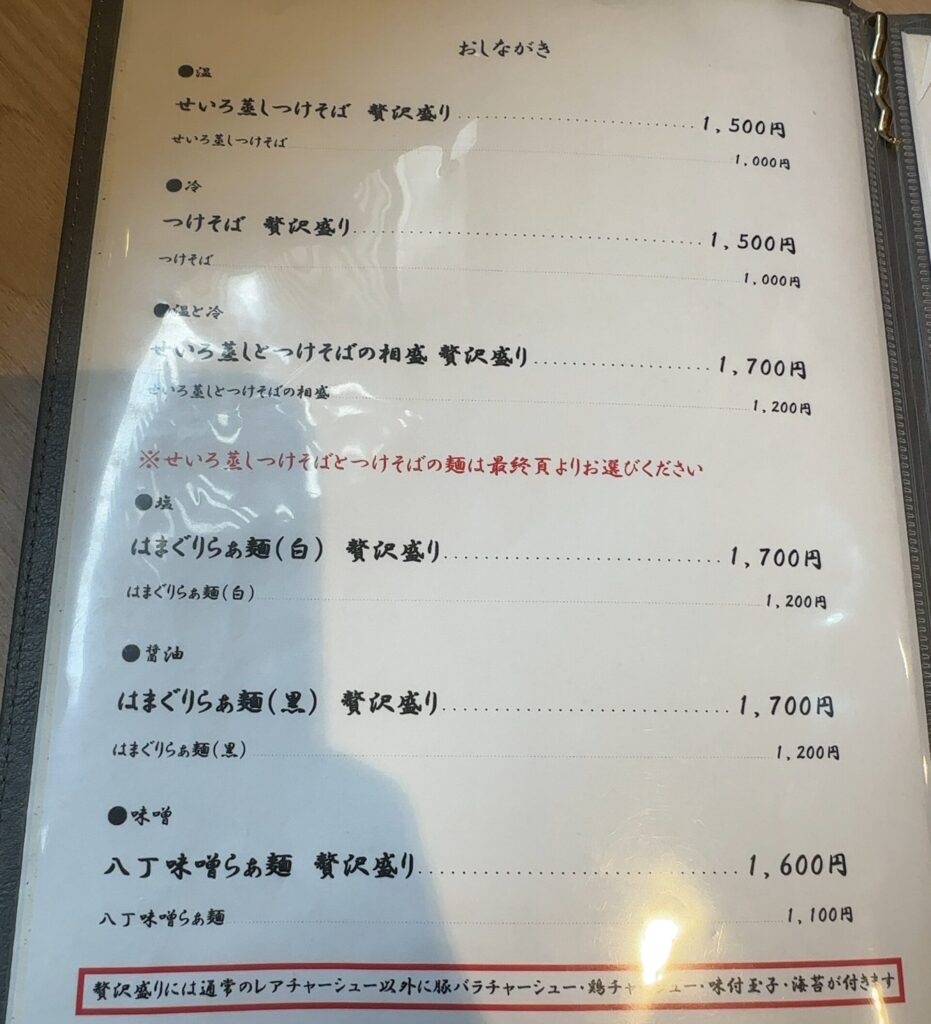 おしながき
●温
せいろ蒸しつけそば 贅沢盛り 1,500円
せいろ蒸しつけそば 1,000円
●冷
つけそば 贅沢盛り 1,500円
つけそば 1,000円
●温と冷
せいろ蒸しとつけそばの相盛 贅沢盛り 1,700円
せいろ蒸しとつけそばの相盛 1,200円
※せいろ蒸しつけそばとつけそばの麺は最終頁よりお選びください
●塩
はまぐりらぁ麺(白) 贅沢盛り 1,700円
はまぐりらぁ麺(白) 1,200円
●醤油
はまぐりらぁ麺(黒) 贅沢盛り 1,700円
はまぐりらぁ麺(黒) 1,200円
●味噌
八丁味噌らぁ麺 贅沢盛り 1,600円
八丁味噌らぁ麺 1,100円
贅沢盛りには通常のレアチャーシュー以外に豚バラチャーシュー・鶏チャーシュー・味付玉子・海苔が付きます